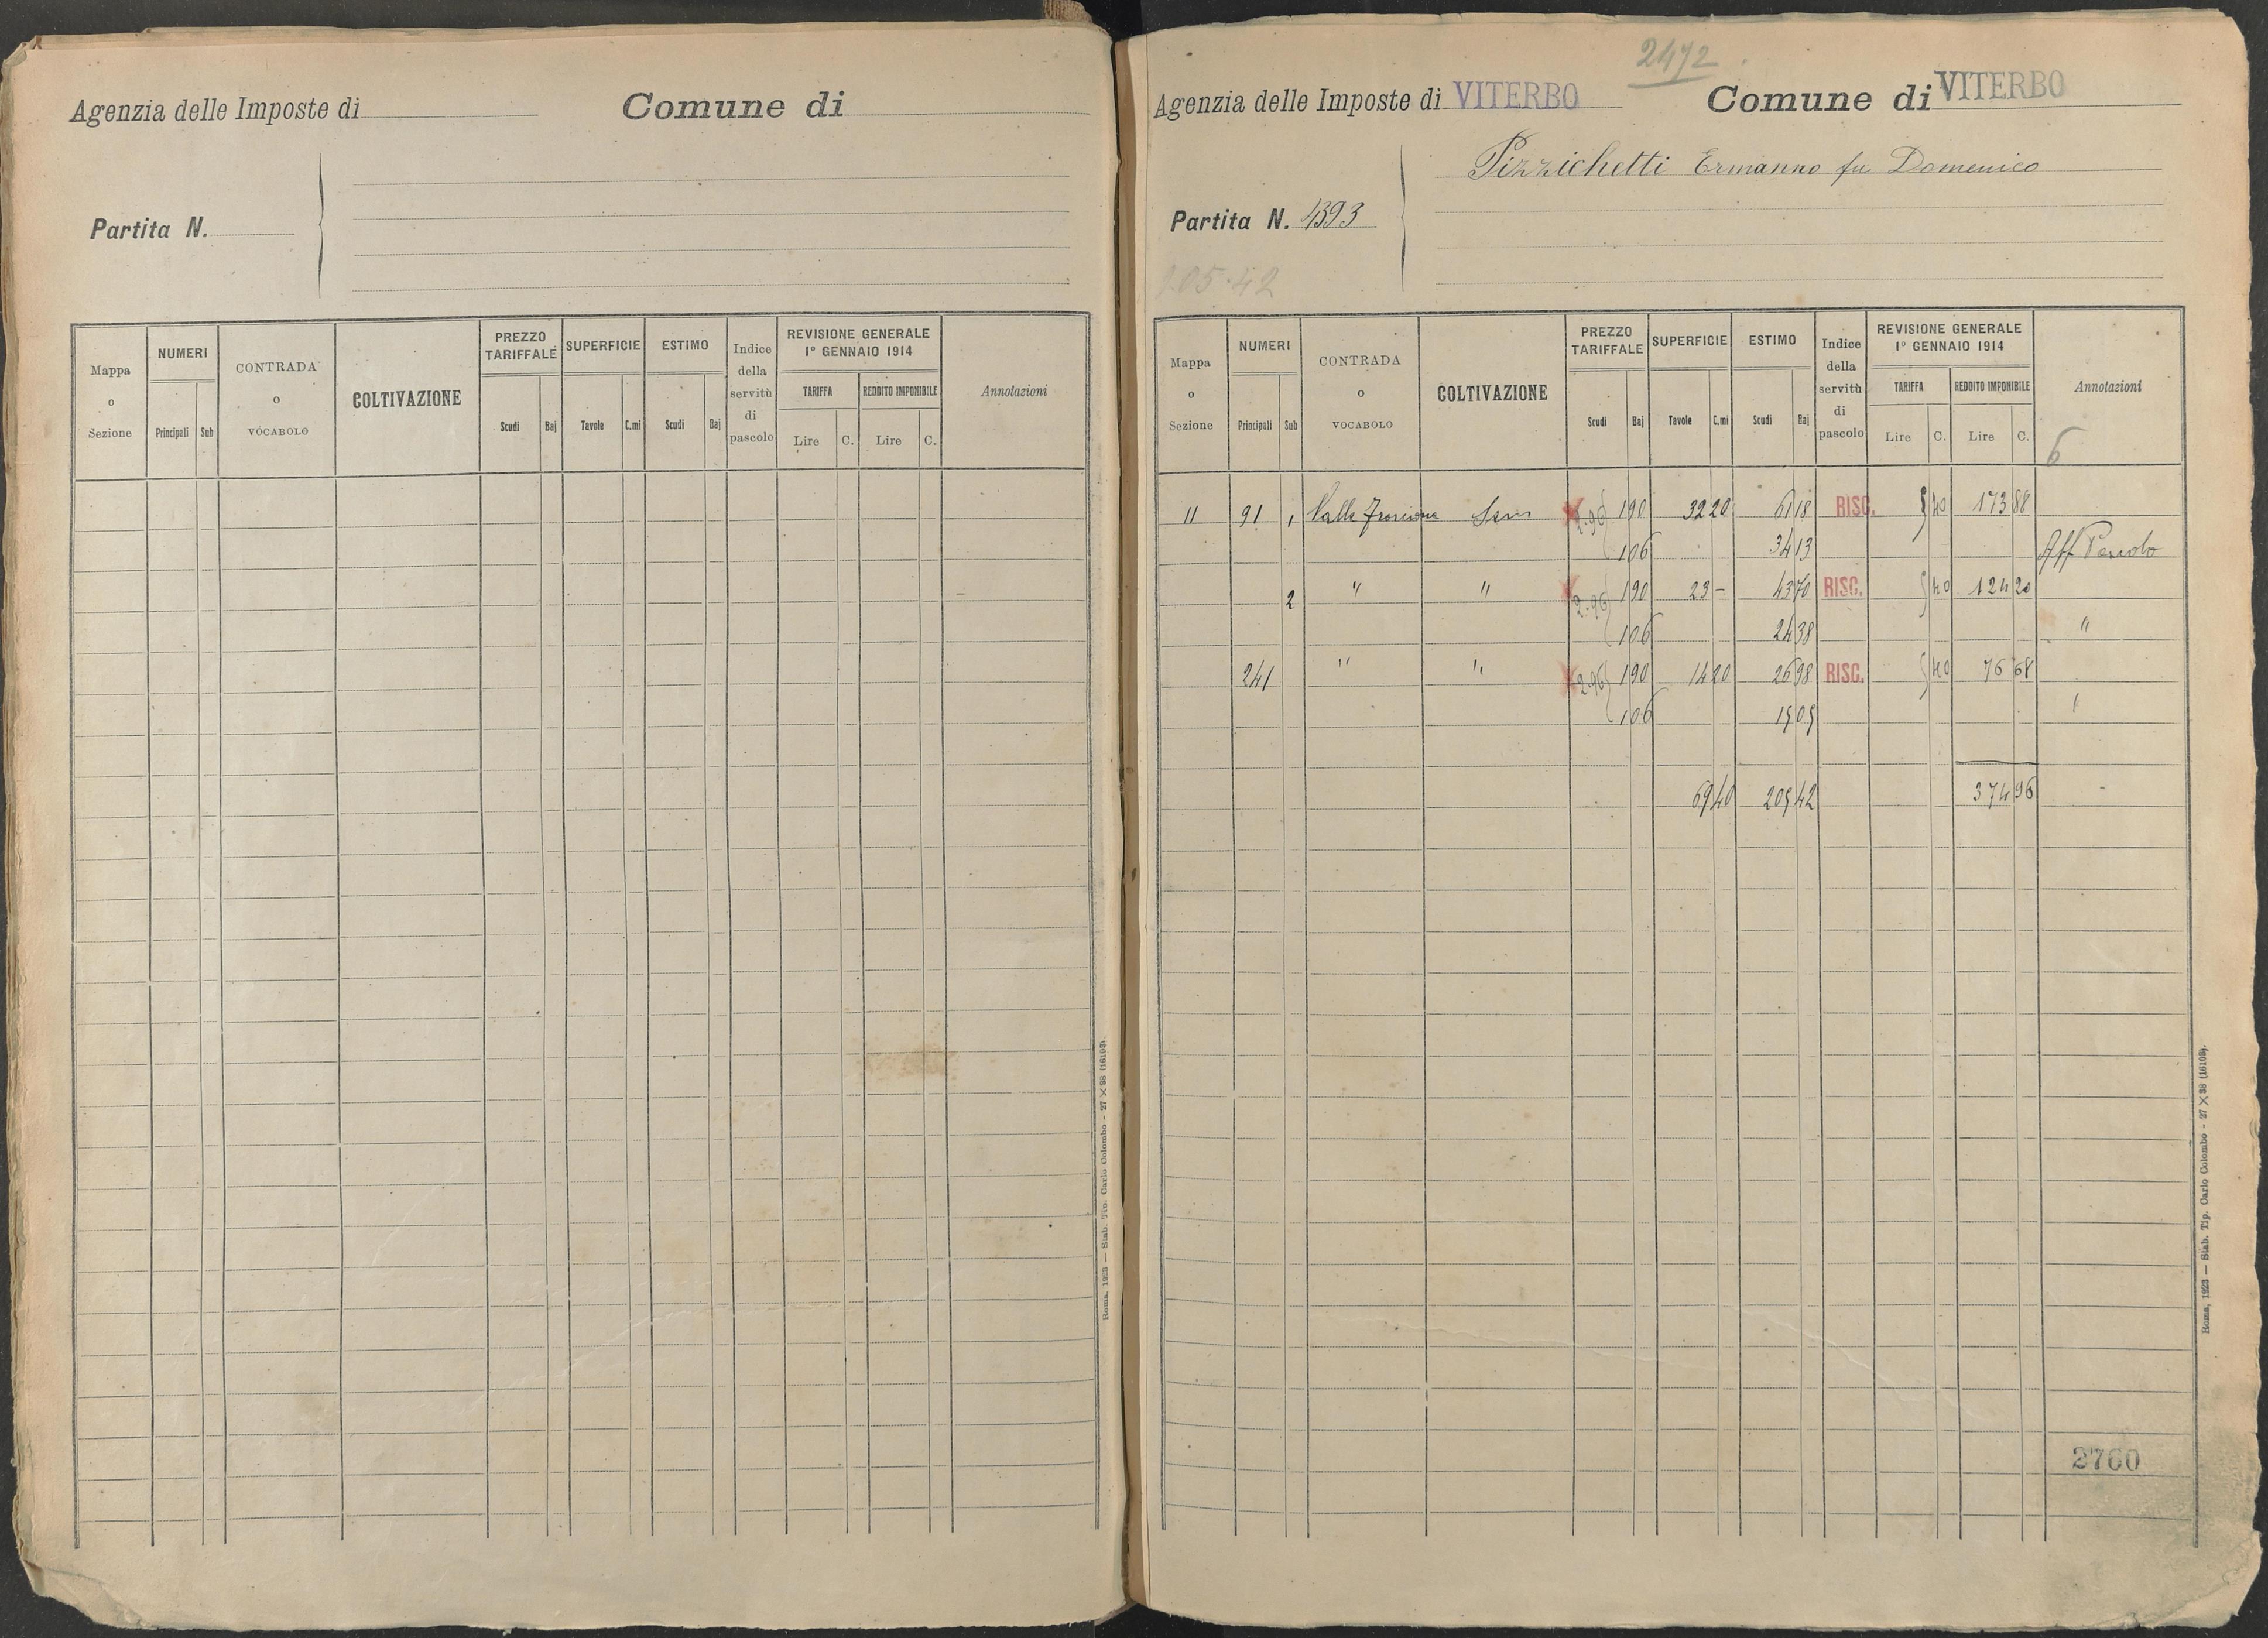 Agenzia delle Imposte di
Comune di
Partita N.
Mappa o Sezione
NUMERI
Principali Sub
CONTRADA o VOCABOLO
COLTIVAZIONE
PREZZO TARIFFALE
Scudi Baj
SUPERFICIE
Tavole C.mi
ESTIMO
Scudi Baj
Indice della servitù di pascolo
REVISIONE GENERALE
1° GENNAIO 1914
TARIFFA
Lire C.
REDDITO IMPONIBILE
Lire C.
Annotazioni
Roma, 1923 — Stab. Tip. Carlo Colombo - 27 × 38 (16103).
2472
Agenzia delle Imposte di VITERBO
Comune di VITERBO
Pizzichetti Ermanno fu Domenico
Partita N. 4393
105.42
Mappa o Sezione
NUMERI
Principali Sub
CONTRADA o VOCABOLO
COLTIVAZIONE
PREZZO TARIFFALE
Scudi Baj
SUPERFICIE
Tavole C.mi
ESTIMO
Scudi Baj
Indice della servitù di pascolo
REVISIONE GENERALE
1° GENNAIO 1914
TARIFFA
Lire C.
REDDITO IMPONIBILE
Lire C.
Annotazioni
6
11 91 1 Valle 2.96 190 32 20 61 18 RISC. 5 40 173 88
106 34 13 Aff
2 " " 2.96 190 23 - 43 70 RISC. 5 40 124 20
106 24 38 "
241 " " 2.96 190 14 20 26 98 RISC. 5 40 76 68
106 15 05 "
69 40 205 42 374 96
2760
Roma, 1923 — Stab. Tip. Carlo Colombo - 27 × 38 (16103).